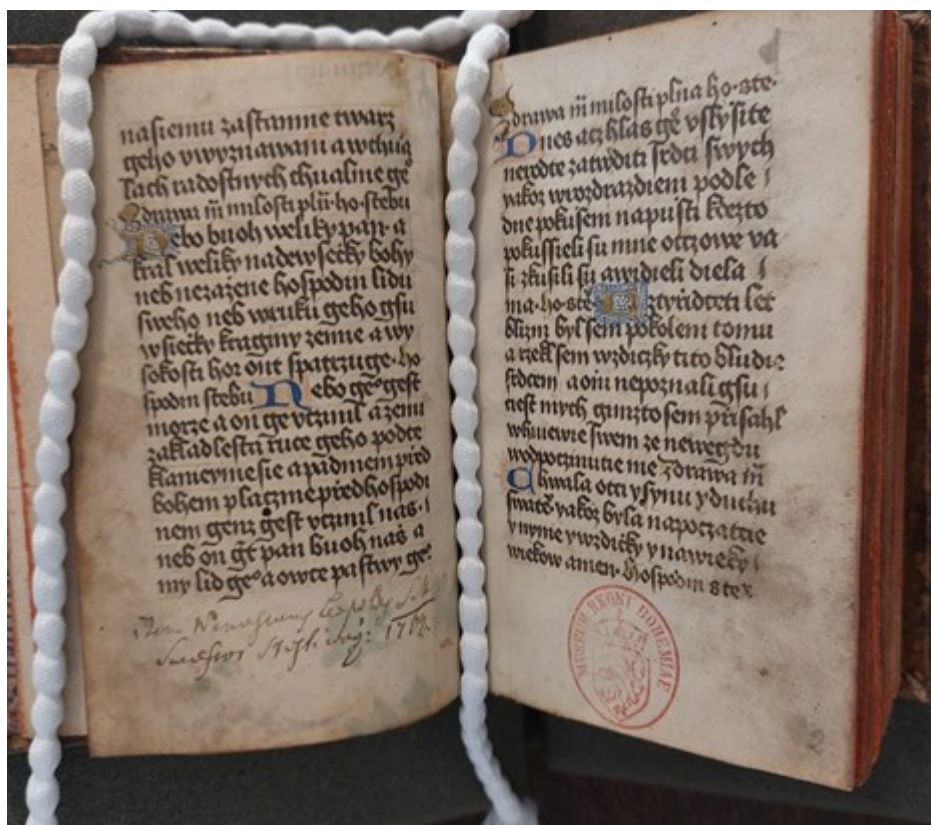 nasiemu zastanme twarz
geho vwyznawani a wchwa
lach radostnych chualme ge
Zdrawa m̃ milosti plñ· ho· stebu
Nebo buoh weliky pan· a
kral weliky nadewsecky bohy
neb nezazene hospodin lidu
sweho neb wruku geho gsu
wsiecky kraginy zeme a wy
sokosti hor ont spatrzuge· ho
spodin stebu Nebo geº gest
morze a on ge vczinil a zemi
zakladlesta ruce geho podte
klaneyme sie a padnem pred
bohem placzme przed hospodi
nem genz gest vczinil nas·
neb on gt pan buoh nas a
my lid geº a owce pastwy geº
1762
Zdrawa m̃ milosti plna ho· ste·
Dnes acz hlas geº vslysite
nerodte zatwrditi srdci swych
yakoz wrozdrazdieni podle
dne pokusem napusti kdezto
pokussieli su mne otczowe wa
si zkusili su a widieli diela
ma· ho· ste· Cztyridceti let
blizni byl sem pokoleni tomu
a rzekl sem wzdiczky tito bludie
srdcem a oni nepoznali gsu
ciest mych gimzto sem prisahl
whniewie swem ze newegdu
wodpoczinutie me Zdrawa m̃
Chwala otci y synu y duchu
swateº yakoz byla napoczatce
y nynie y wzdicky y nawieky
wiekow amen· Hospodin stex
MUSEUM REGNI BOHEMIAE
2